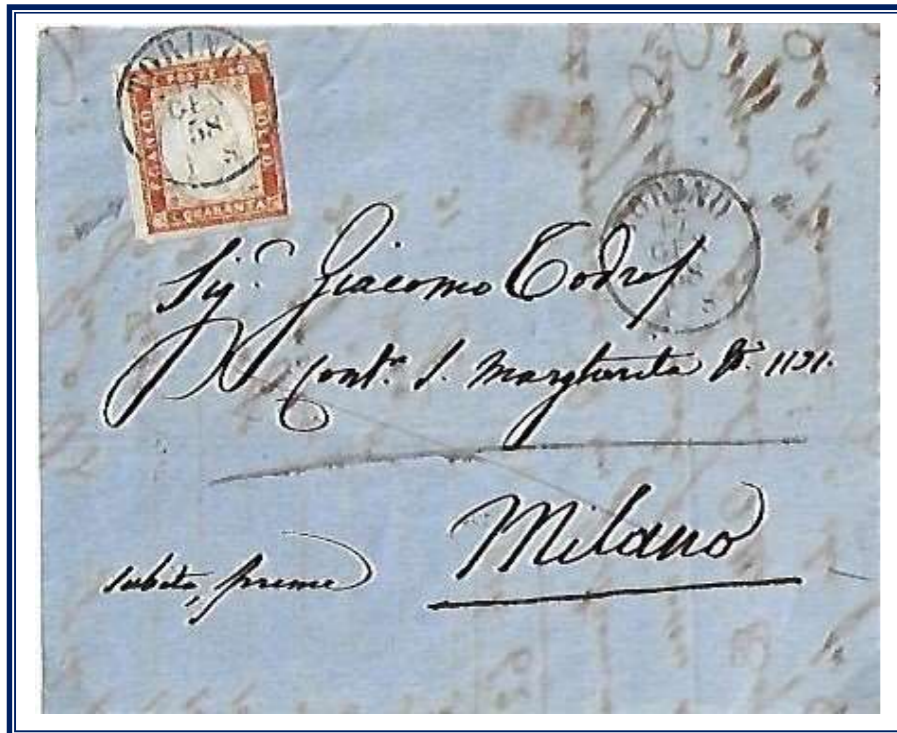 TORINO
GEN
58
FRANCO
POSTE
BOLLO
C. QUARANTA
TORINO
Sig.r Giacomo Todros
Cont.a S. Margherita N.o 1131.
Milano
subito, preme